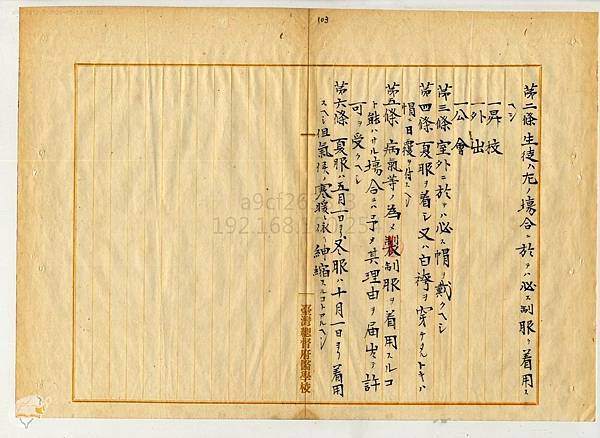 103
第二條 生徒ハ左ノ場合ニ於テハ必ス制服ヲ着用ス
ヘシ
一昇校
一外出
一公會
第三條 室外ニ於テハ必ス帽ヲ戴クヘシ
第四條 夏服ヲ着シ又ハ白袴ヲ穿ケタルトキハ
帽ニ日覆ヲ付スヘシ
第五條 病氣等ノ為メ製制服ヲ着用スルコ
ト能ハサル場合ニハ予メ其理由ヲ届出テ許
可ヲ受クヘシ
第六條 夏服ハ五月一日ヨリ冬服ハ十月一日ヨリ着用
スヘシ但氣候ノ寒暖ニ依リ伸縮スルコトアルヘシ
臺灣總督府醫學校